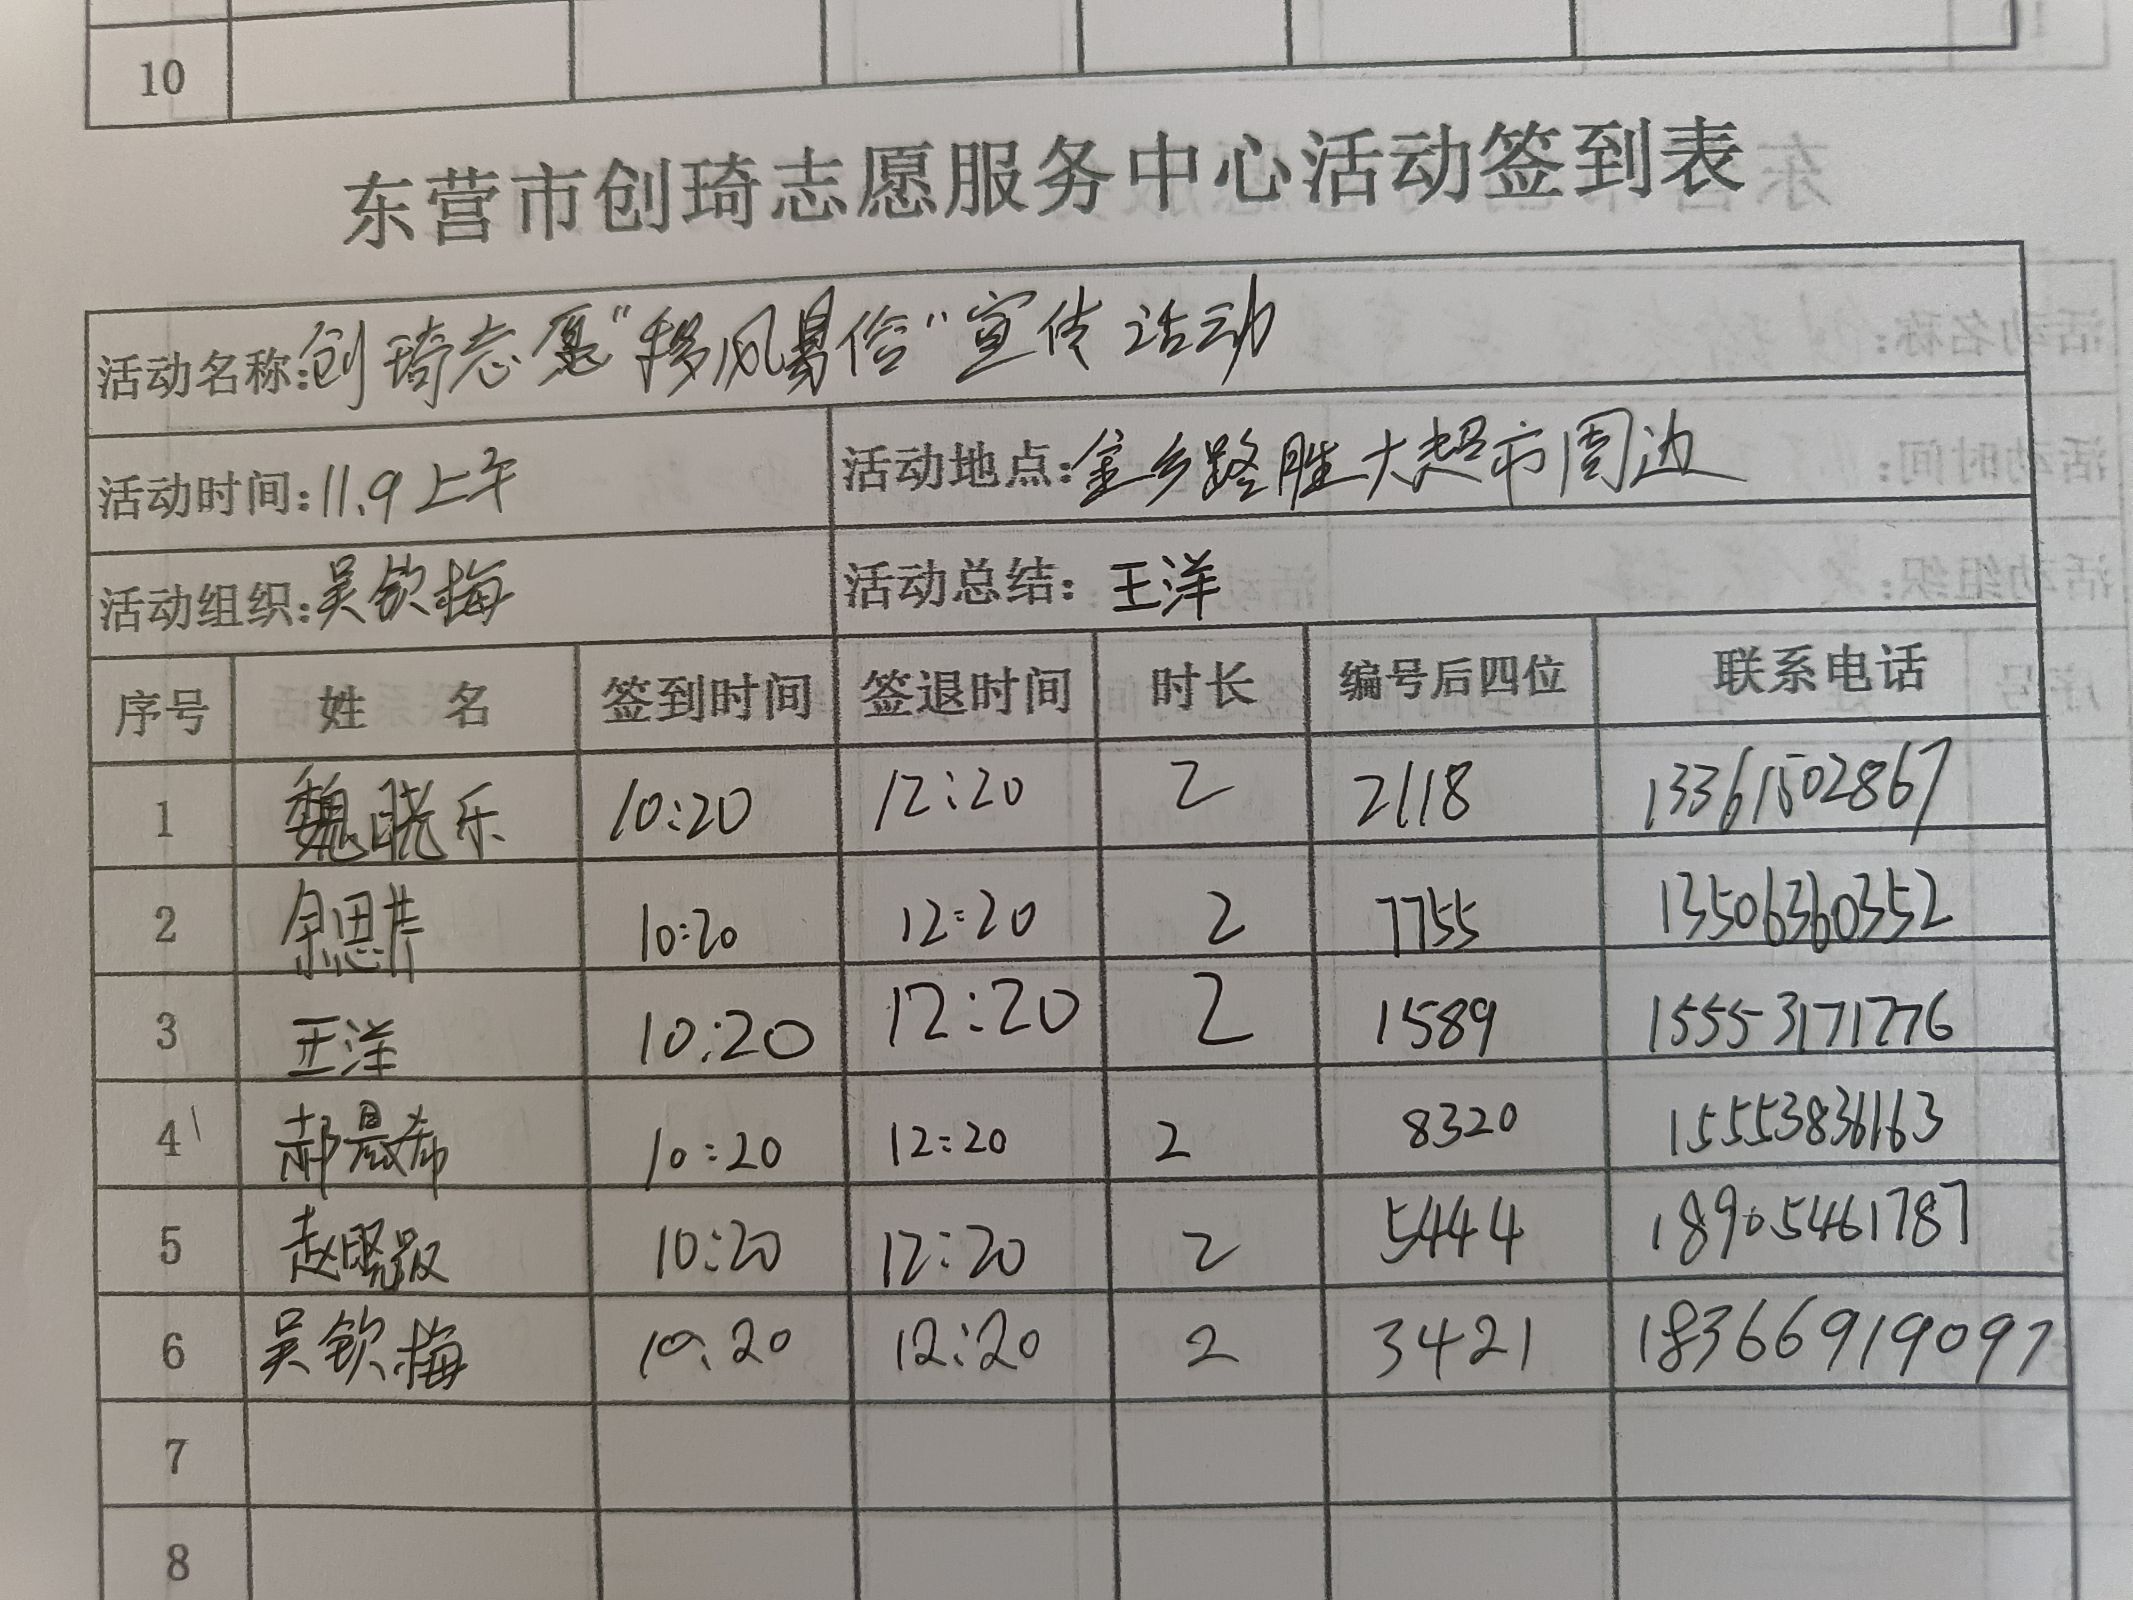 10
东营市创琦志愿服务中心活动签到表
活动名称:创琦志愿"移风易俗"宣传活动
活动时间:11.9上午 活动地点:金乡路胜大超市周边
活动组织:吴钦梅 活动总结:王洋
序号 姓 名 签到时间 签退时间 时长 编号后四位 联系电话
1 魏晓乐 10:20 12:20 2 2118 13361502867
2 10:20 12:20 2 7755 13506360352
3 王洋 10:20 12:20 2 1589 15553171776
4 郝晨希 10:20 12:20 2 8320 15553836163
5 赵 10:20 12:20 2 5444 18905461787
6 吴钦梅 10:20 12:20 2 3421 18366919097
7
8